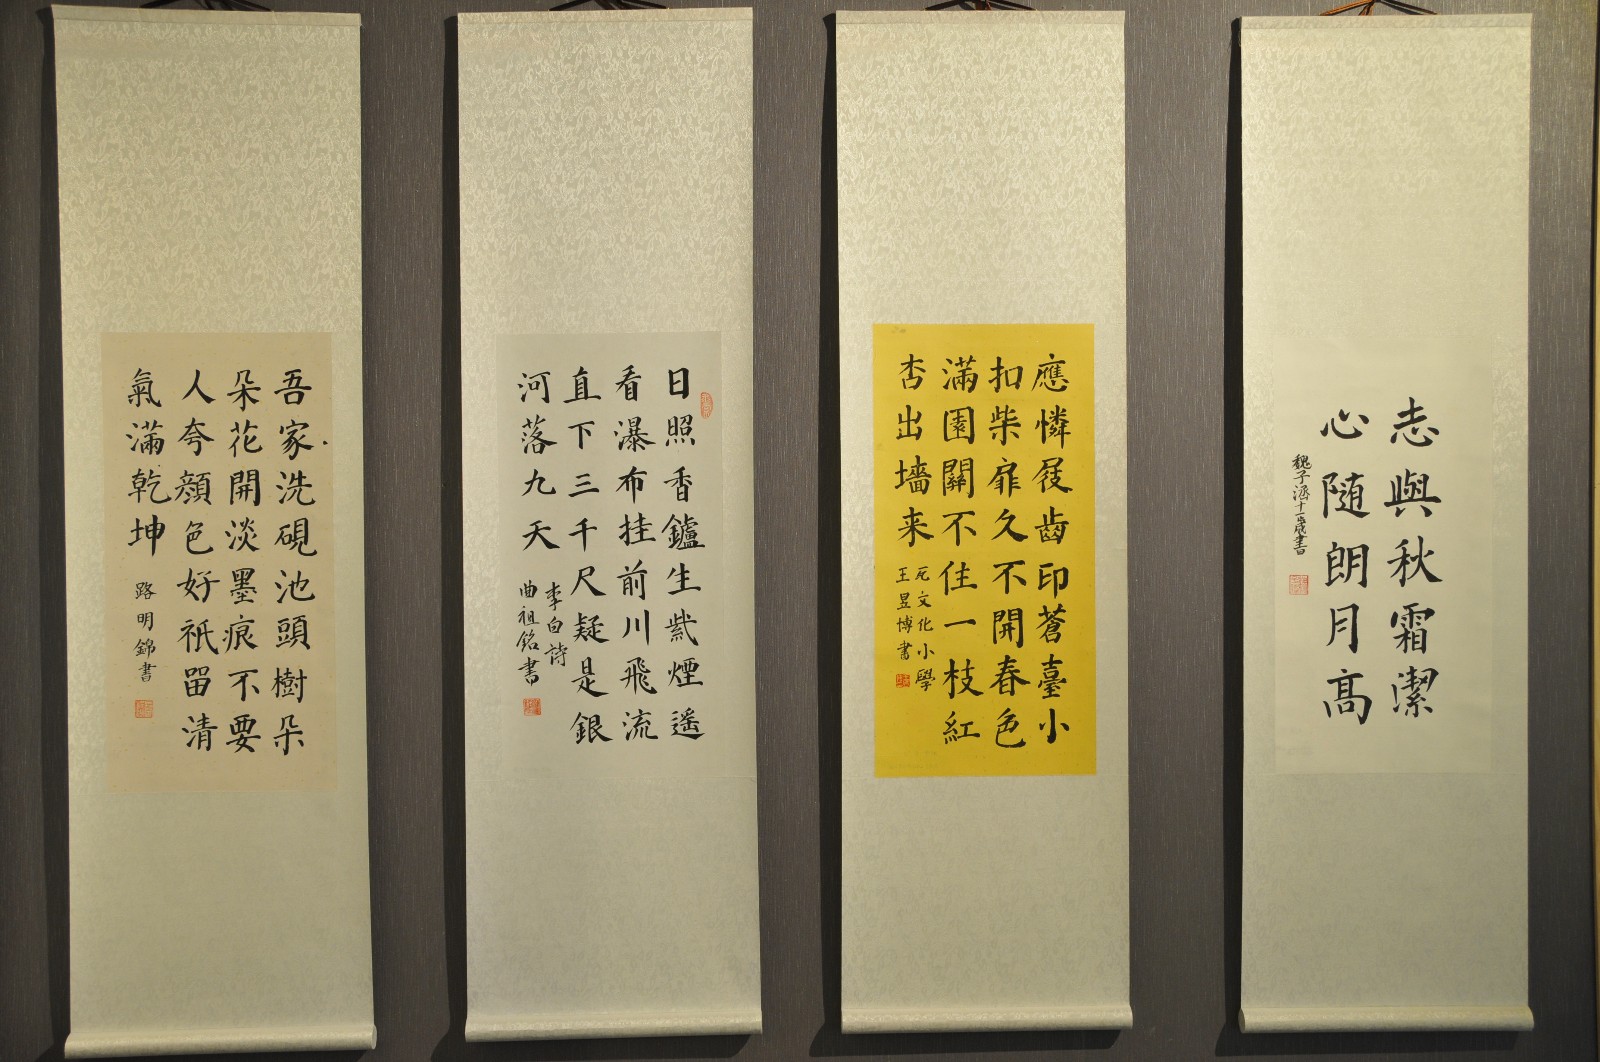 志與秋霜潔
心随朗月高
魏子涵十一歲書
應憐屐齒印蒼臺小
扣柴扉久不開春色
滿園關不住一枝紅
杏出墻来
文化小學
王昱博書
日照香鑪生紫煙遥
看瀑布挂前川飛流
直下三千尺疑是銀
河落九天
李白詩
曲祖銘書
吾家洗硯池頭樹朵
朵花開淡墨痕不要
人夸顏色好祇留清
氣滿乾坤
路明錦書